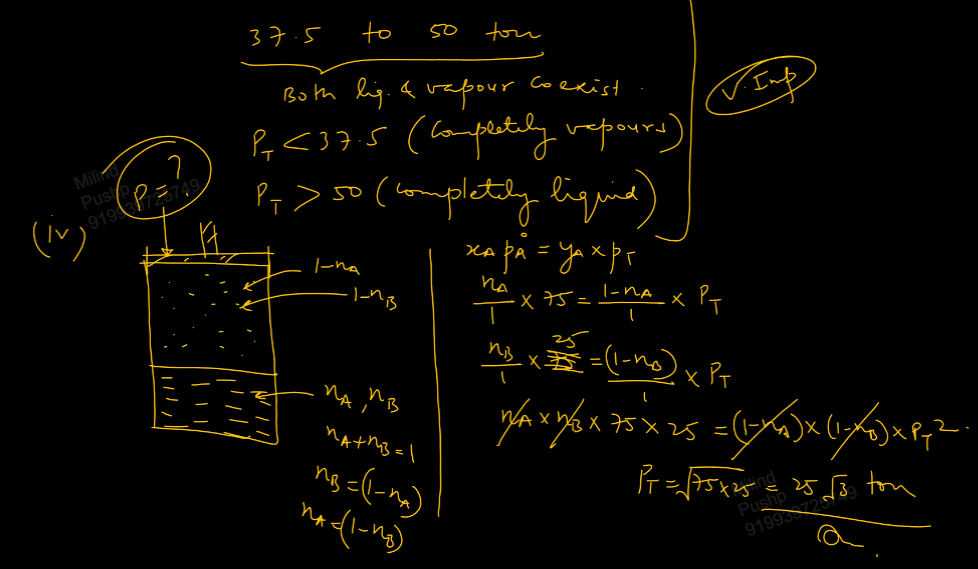 37.5 to 50 torr
Both liq. & vapour coexist.
P_T < 37.5 (completely vapours)
P_T > 50 (completely liquid)
V. Imp
Milind
Pushp
919939725749
P = ?
(iv)
1-n_A
1-n_B
n_A, n_B
n_A+n_B=1
n_B=(1-n_A)
n_A=(1-n_B)
x_A p°_A = y_A × p_T
n_A/1 × 75 = 1-n_A/1 × P_T
n_B/1 × 25 = (1-n_B)/1 × P_T
n_A × n_B × 75 × 25 = (1-n_A) × (1-n_B) × P_T^2.
P_T = √75×25 = 25√3 torr
Milind
Pushp
919939725749